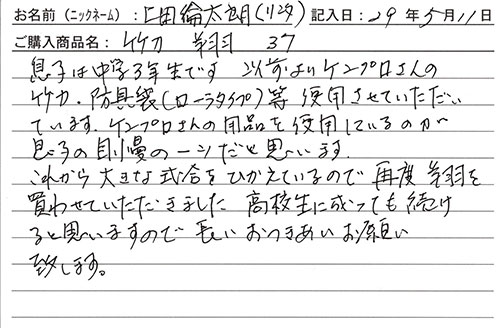 お名前(ニックネーム):上田倫太朗(リンタ 記入日:29年5月11日
ご購入商品名: 竹刀 翔羽 37
息子は中学3年生です 以前よりケンプロさんの
竹刀・防具袋(ローラタイプ)等 使用させていただい
ています。ケンプロさんの用品を使用しているのが
息子の自慢の一ツだと思います。
これから大きな試合をひかえているので 再度 翔羽を
買わせていただきました 高校生に成っても続け
ると思いますので 長いおつきあいお願い
致します。